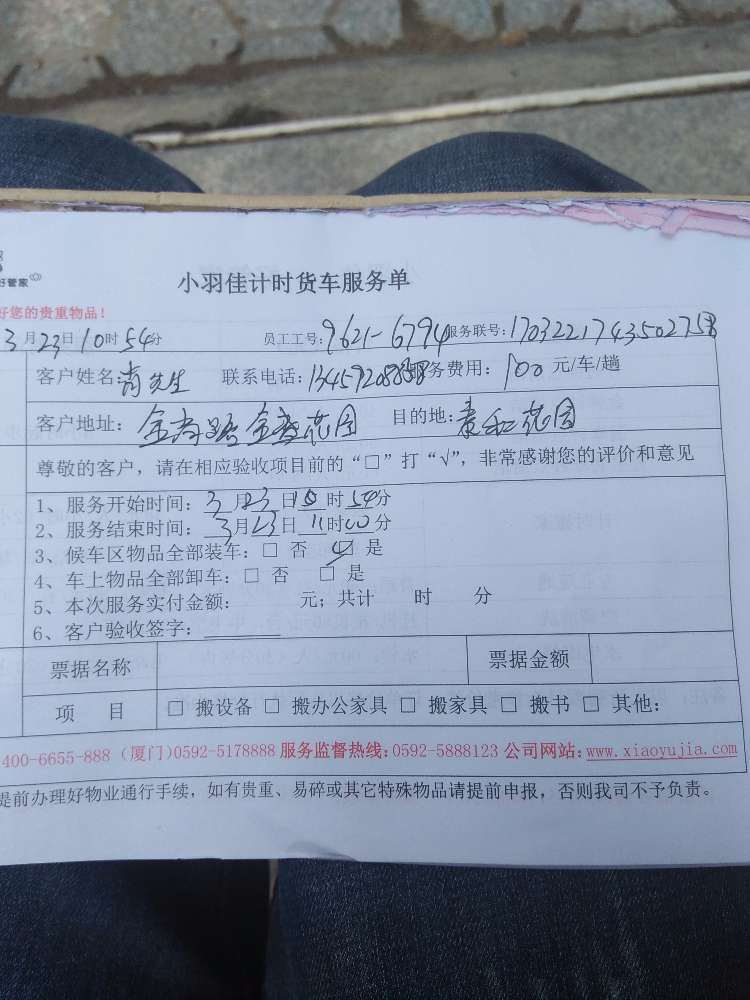 好管家
小羽佳计时货车服务单
好您的贵重物品！
3月23日10时54分 员工工号：9621-6794 服务联号：1703221743502758
客户姓名：肖先生 联系电话：13459208888 服务费用：100元/车/趟
客户地址：金尚路金尚花园 目的地：泰和花园
尊敬的客户，请在相应验收项目前的“□”打“√”，非常感谢您的评价和意见
1、服务开始时间：3月23日10时54分
2、服务结束时间：3月23日11时00分
3、候车区物品全部装车：□ 否 ☑ 是
4、车上物品全部卸车：□ 否 □ 是
5、本次服务实付金额： 元；共计 时 分
6、客户验收签字：
票据名称 票据金额
项 目 □ 搬设备 □ 搬办公家具 □ 搬家具 □ 搬书 □ 其他：
400-6655-888（厦门）0592-5178888 服务监督热线：0592-5888123 公司网站：www.xiaoyujia.com
提前办理好物业通行手续，如有贵重、易碎或其它特殊物品请提前申报，否则我司不予负责。